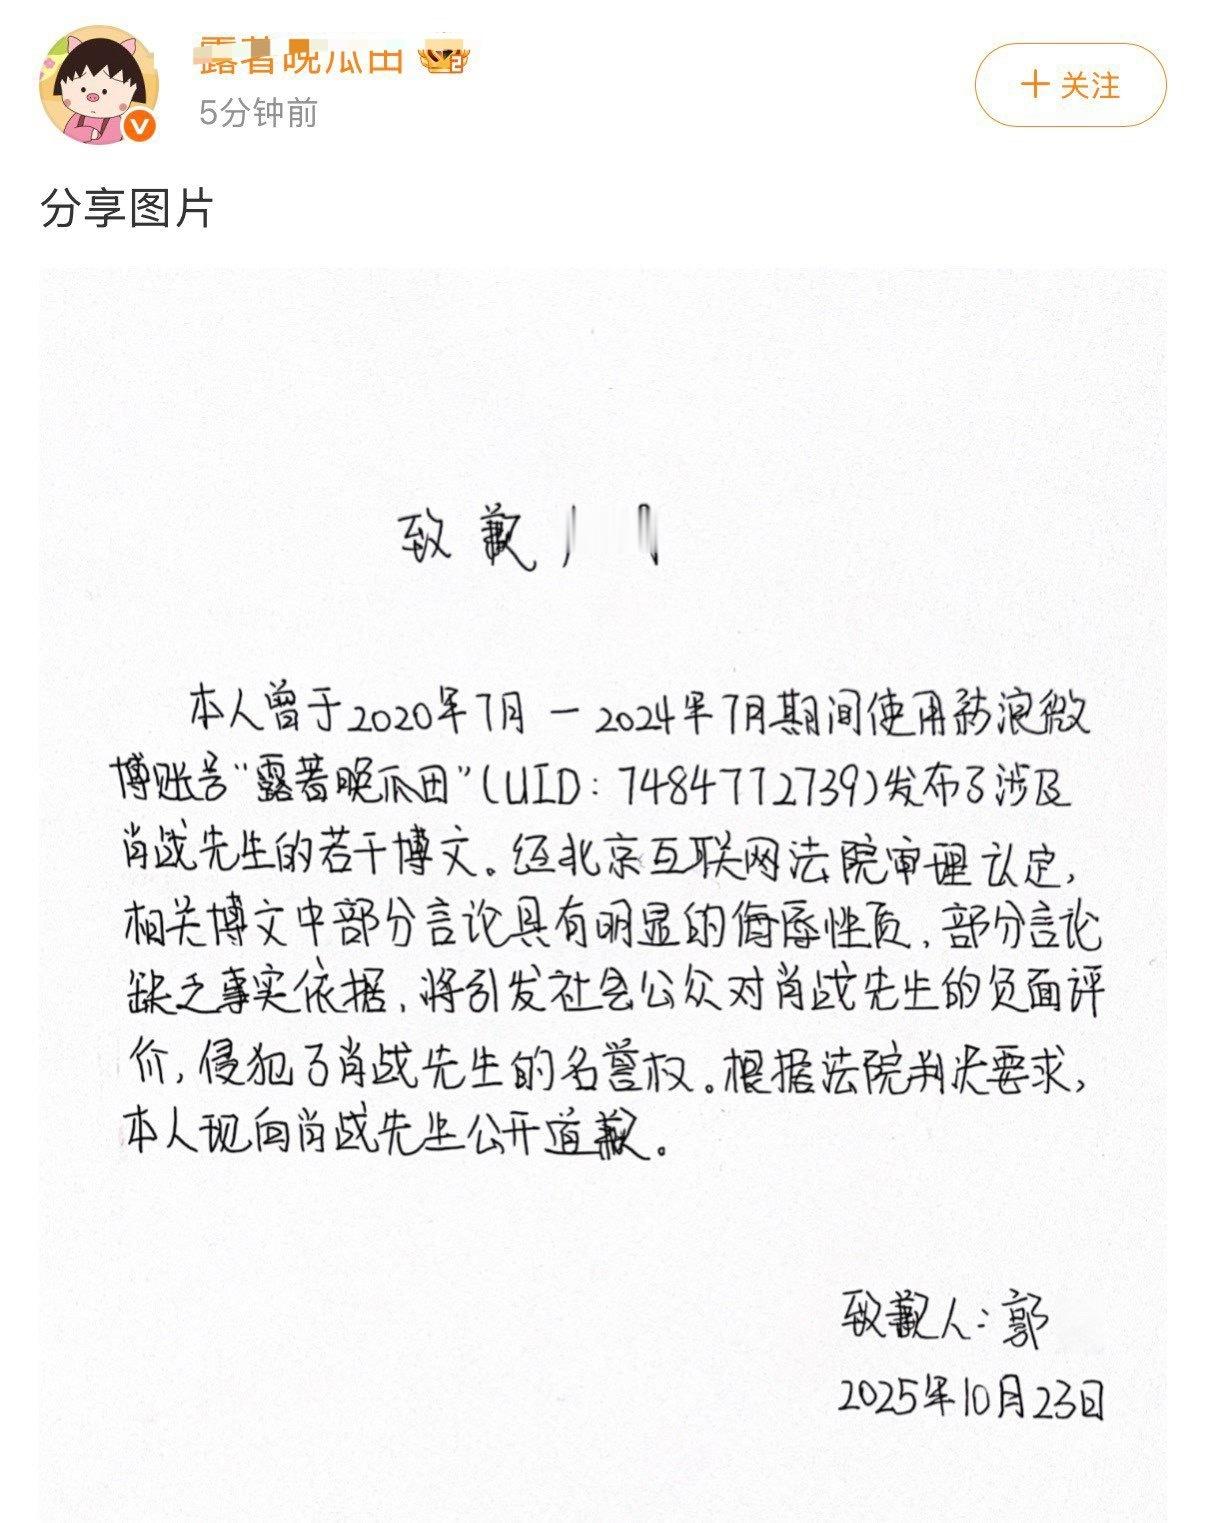 露着晚瓜田
5分钟前
+ 关注
分享图片
致歉
本人曾于2020年7月－2024年7月期间使用新浪微
博账号“露着晚瓜田”(UID：7484772739)发布了涉及
肖战先生的若干博文。经北京互联网法院审理认定，
相关博文中部分言论具有明显的侮辱性质，部分言论
缺乏事实依据，将引发社会公众对肖战先生的负面评
价，侵犯了肖战先生的名誉权。根据法院判决要求，
本人现向肖战先生公开道歉。
致歉人：郭
2025年10月23日